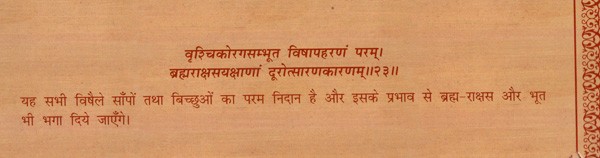 वृश्चिकोरगसम्भूत विषापहरणं परम्।
ब्रह्मराक्षसयक्षाणां दूरोत्सारणकारणम्॥२३॥
यह सभी विषैले साँपों तथा बिच्छुओं का परम निदान है और इसके प्रभाव से ब्रह्म-राक्षस और भूत
भी भगा दिये जाएँगे।